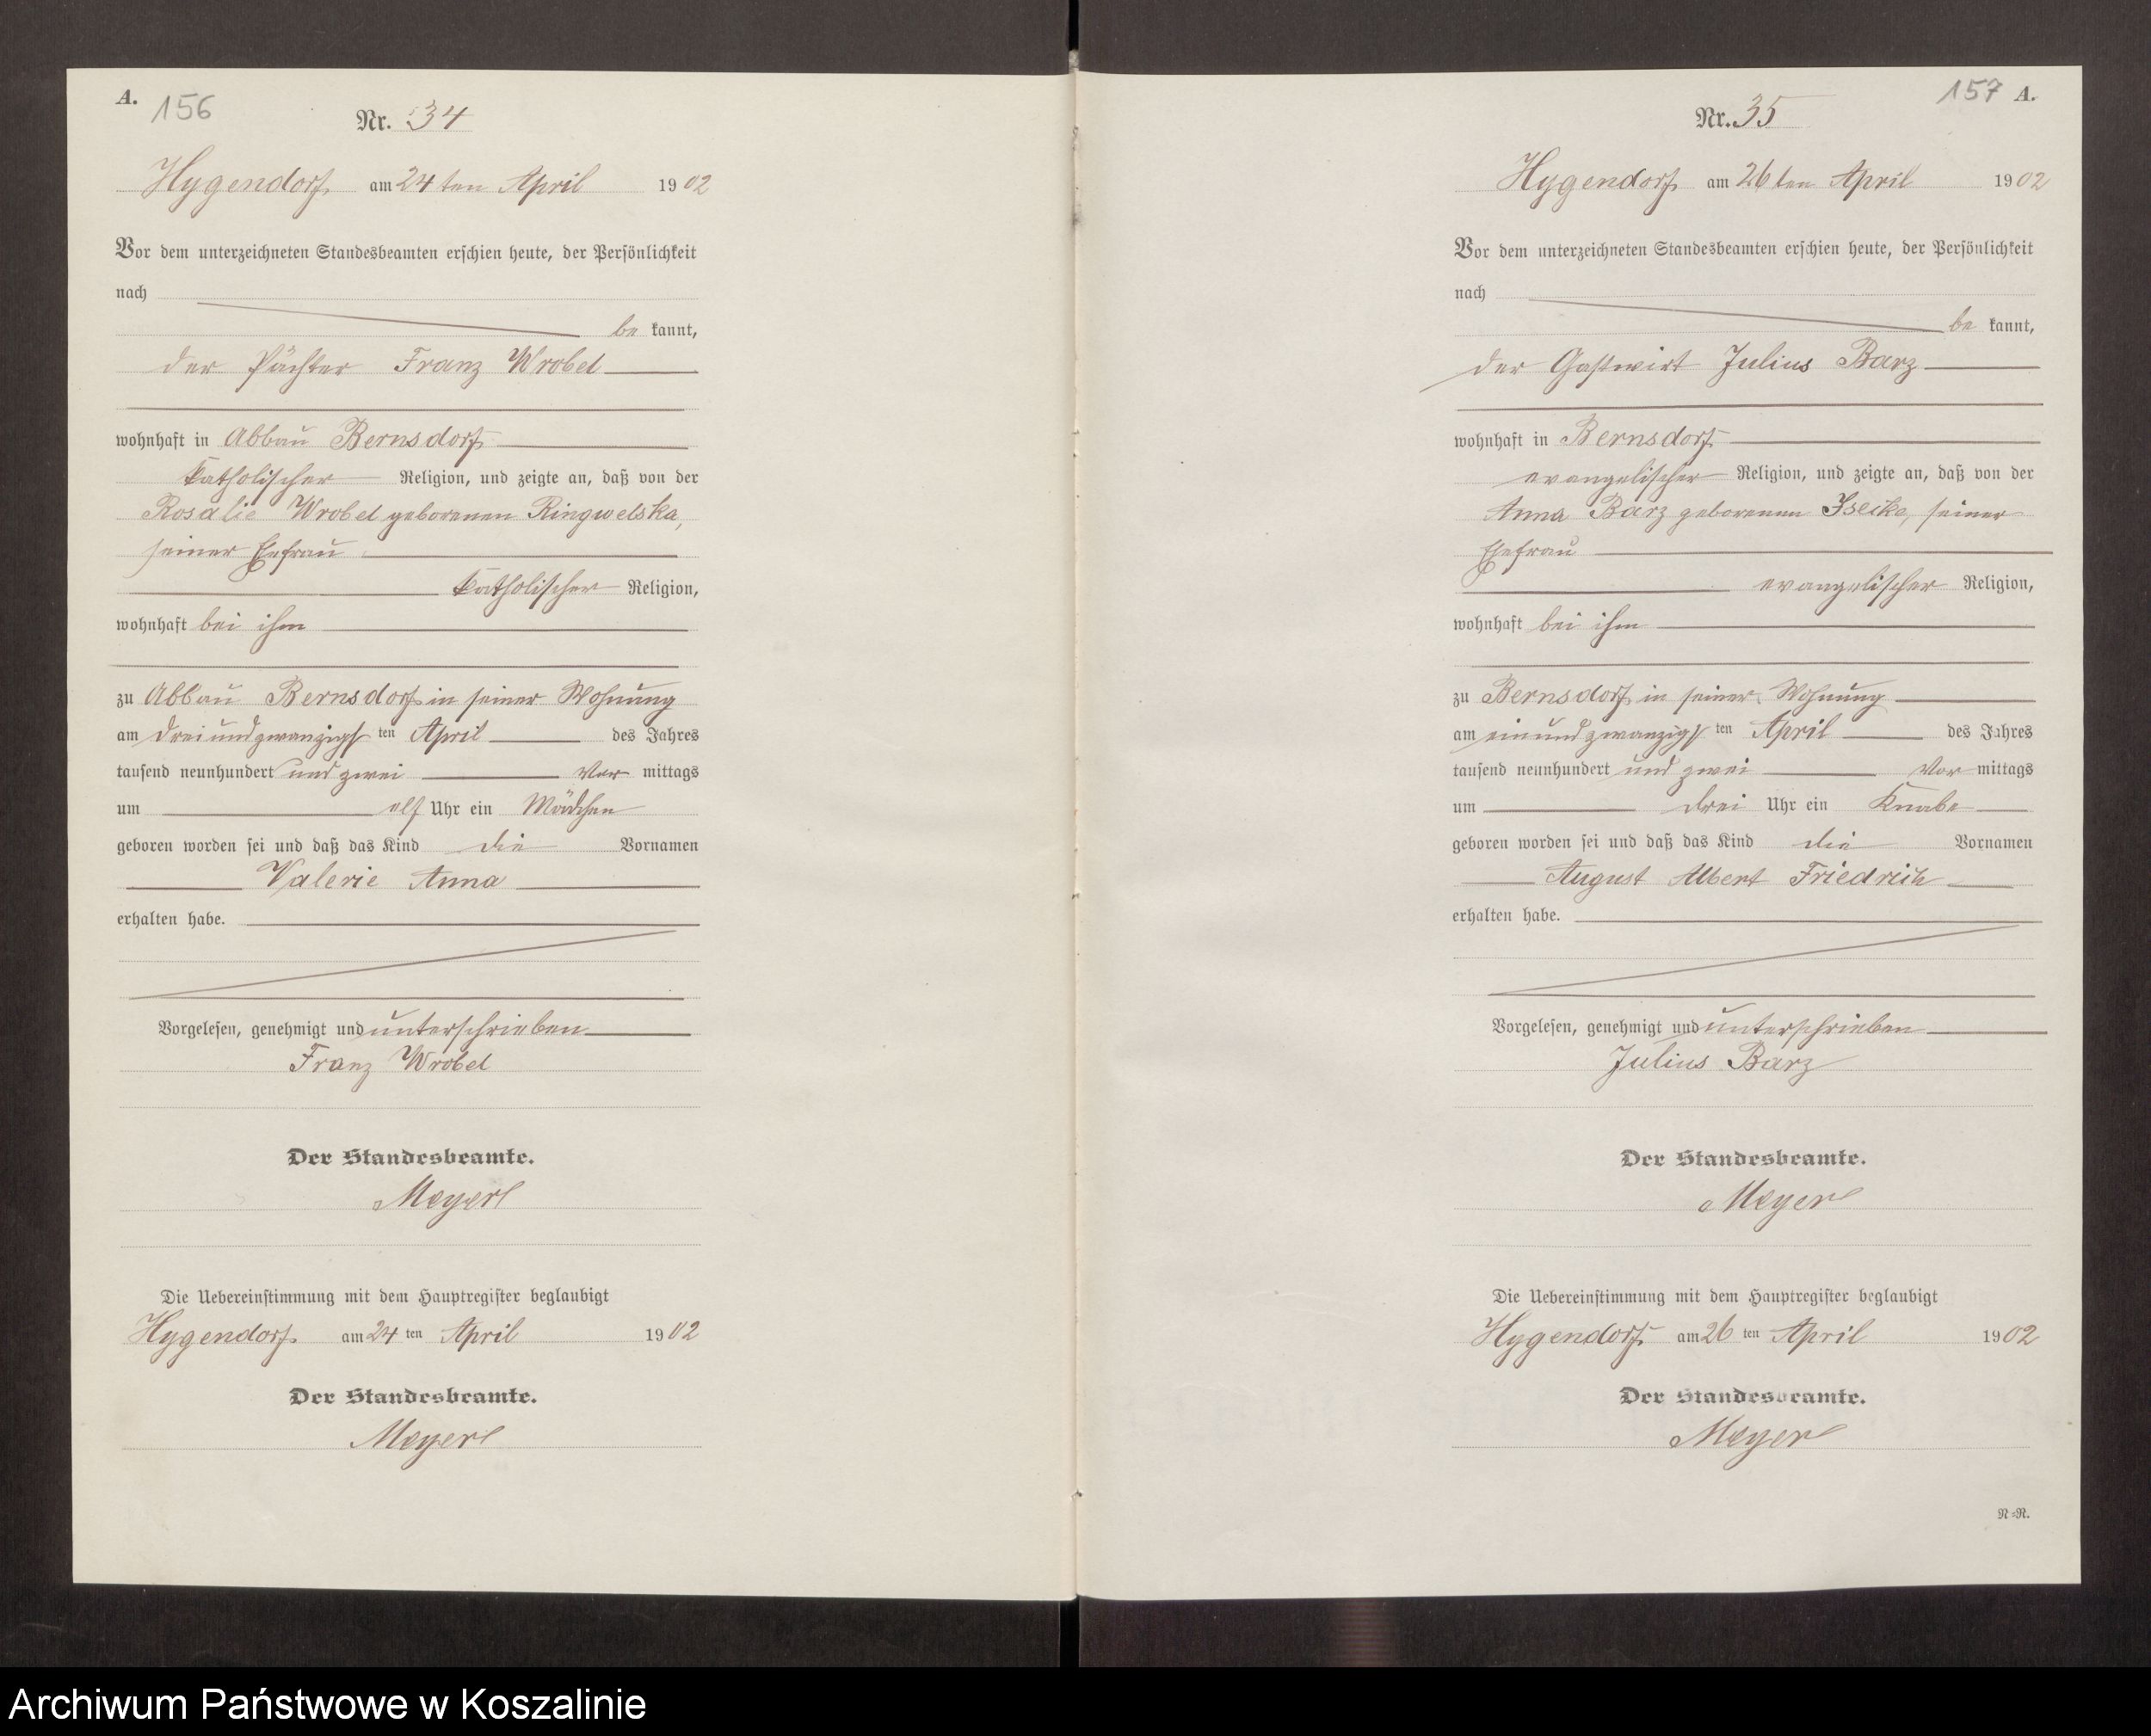 A.
156
Nr. 34
Hygendorf am 24ten April 1902
Vor dem unterzeichneten Standesbeamten erschien heute, der Persönlichkeit
nach
be kannt,
der Pächter Franz Wrobel
wohnhaft in Abbau Bernsdorf
katholischer Religion, und zeigte an, daß von der
Rosalie Wrobel geborenen Ringwelska,
seiner Ehefrau
katholischer Religion,
wohnhaft bei ihm
zu Abbau Bernsdorf in seiner Wohnung
am dreiundzwanzigsten April des Jahres
tausend neunhundert und zwei Vor mittags
um elf Uhr ein Mädchen
geboren worden sei und daß das Kind die Vornamen
Valerie Anna
erhalten habe.
Vorgelesen, genehmigt und unterschrieben
Franz Wrobel
Der Standesbeamte.
Meyer
Die Uebereinstimmung mit dem Hauptregister beglaubigt
Hygendorf am 24 ten April 1902
Der Standesbeamte.
Meyer
157 A.
Nr. 35
Hygendorf am 26ten April 1902
Vor dem unterzeichneten Standesbeamten erschien heute, der Persönlichkeit
nach
be kannt,
der Gastwirt Julius Barz
wohnhaft in Bernsdorf
evangelischer Religion, und zeigte an, daß von der
Anna Barz geborenen Iseike, seiner
Ehefrau
evangelischer Religion,
wohnhaft bei ihm
zu Bernsdorf in seiner Wohnung
am einundzwanzigsten April des Jahres
tausend neunhundert und zwei Vor mittags
um drei Uhr ein Knabe
geboren worden sei und daß das Kind die Vornamen
August Albert Friedrich
erhalten habe.
Vorgelesen, genehmigt und unterschrieben
Julius Barz
Der Standesbeamte.
Meyer
Die Uebereinstimmung mit dem Hauptregister beglaubigt
Hygendorf am 26 ten April 1902
Der Standesbeamte.
Meyer
N=R.
Archiwum Państwowe w Koszalinie